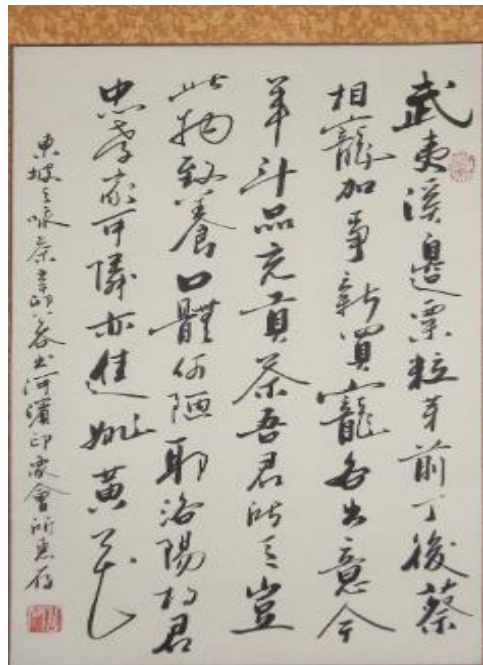 武夷溪邊粟粒芽前丁後蔡
相寵加爭新買寵各出意今
年斗品充貢茶吾君所乏豈
此物致養口體何陋耶洛陽相君
忠孝家可憐亦進姚黃花
東坡之咏茶辛卯春書河濱印會所惠存